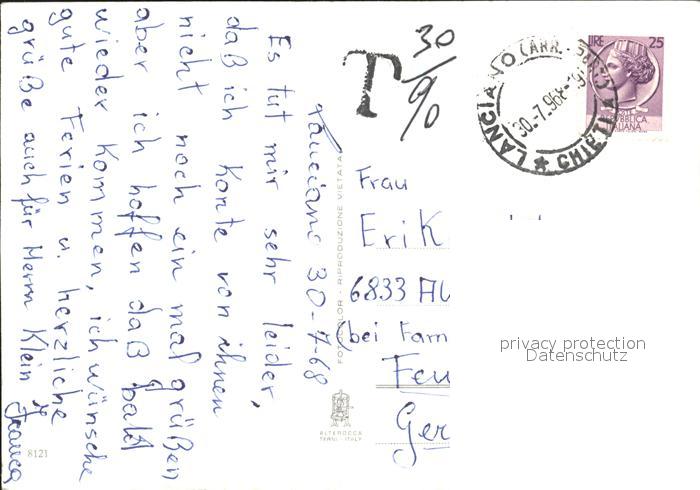 Lanciano 30-7-68
Es tut mir sehr leider,
daß ich konte von ihnen
nicht noch ein mal grüßen
aber ich hoffen daß bald
wieder kommen, ich wünsche
gute Ferien u. herzliche
grüße auch für Herrn Klein
Franca
8121
T 30/%
LANCIANO (ARR.
30-7.968
★ CHIETI ★
LIRE 25
REPUBBLICA
ITALIANA
FOTOCOLOR - RIPRODUZIONE VIETATA
ALTEROCCA
TERNI - ITALY
Frau
Erik
6833
(bei Fam
Ger
privacy protection
Datenschutz